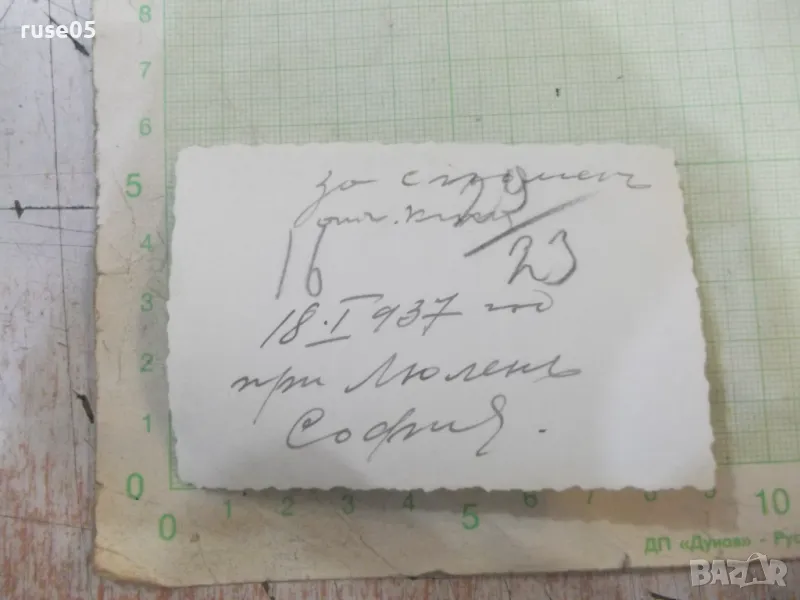 ruse05
8
7
6
5
4
3
2
1
0
за спомен
16
23
18·I 937 год
при Люленъ
София.
0 1 2 5 6 7 8 9 10
ДП «Дунав» - Рус
BAZAR